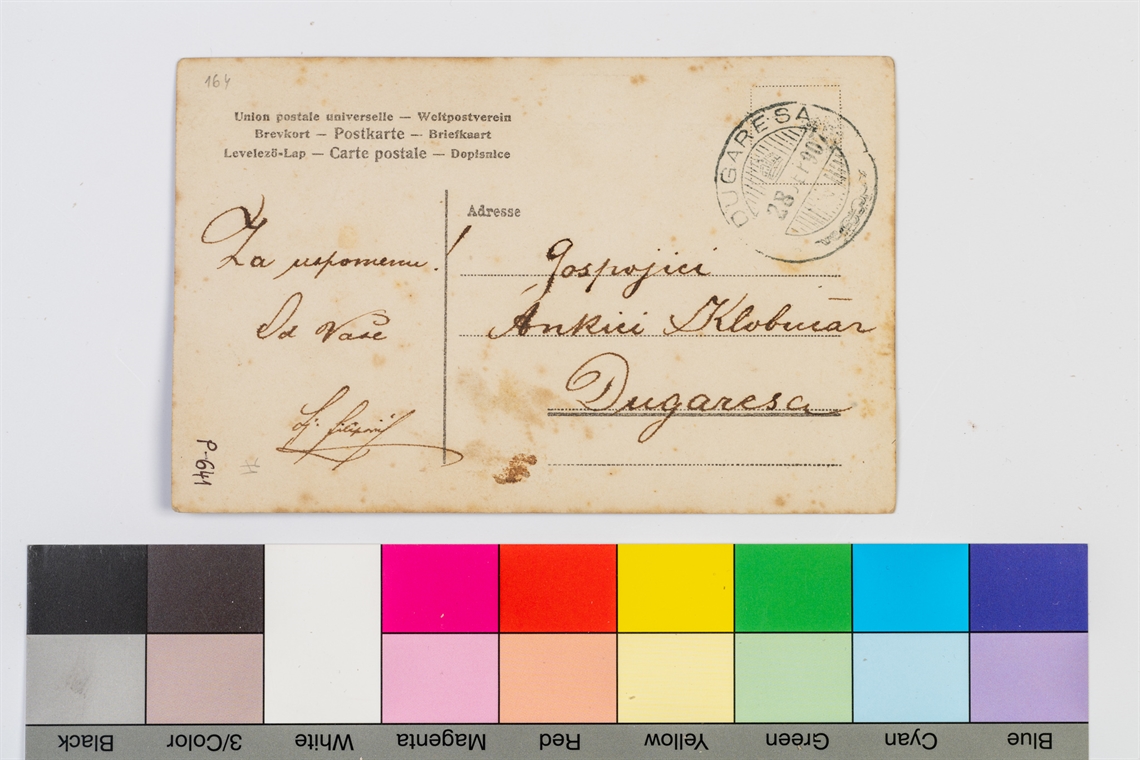 164
Union postale universelle — Weltpostverein
Brevkort — Postkarte — Briefkaart
Levelező-Lap — Carte postale — Dopisnice
DUGARESA
28
Adresse
Za uspomenu!
Od Vaše
Gospojici
Ankici Klobučar
Dugaresa
P-641
Black
3/Color
White
Magenta
Red
Yellow
Green
Cyan
Blue